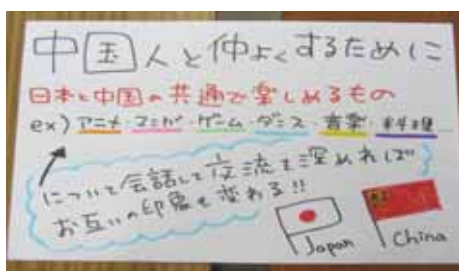 中国人と仲よくするために
日本と中国の共通で楽しめるもの
ex) アニメ・マンガ・ゲーム・ダンス・音楽・料理
について会話して交流を深めれば
お互いの印象も変わる!!
Japan
China